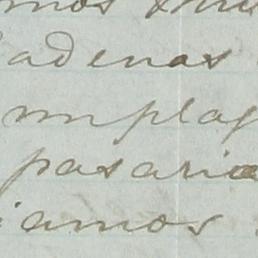 mos
cadenas
implag
pasaria
iamos